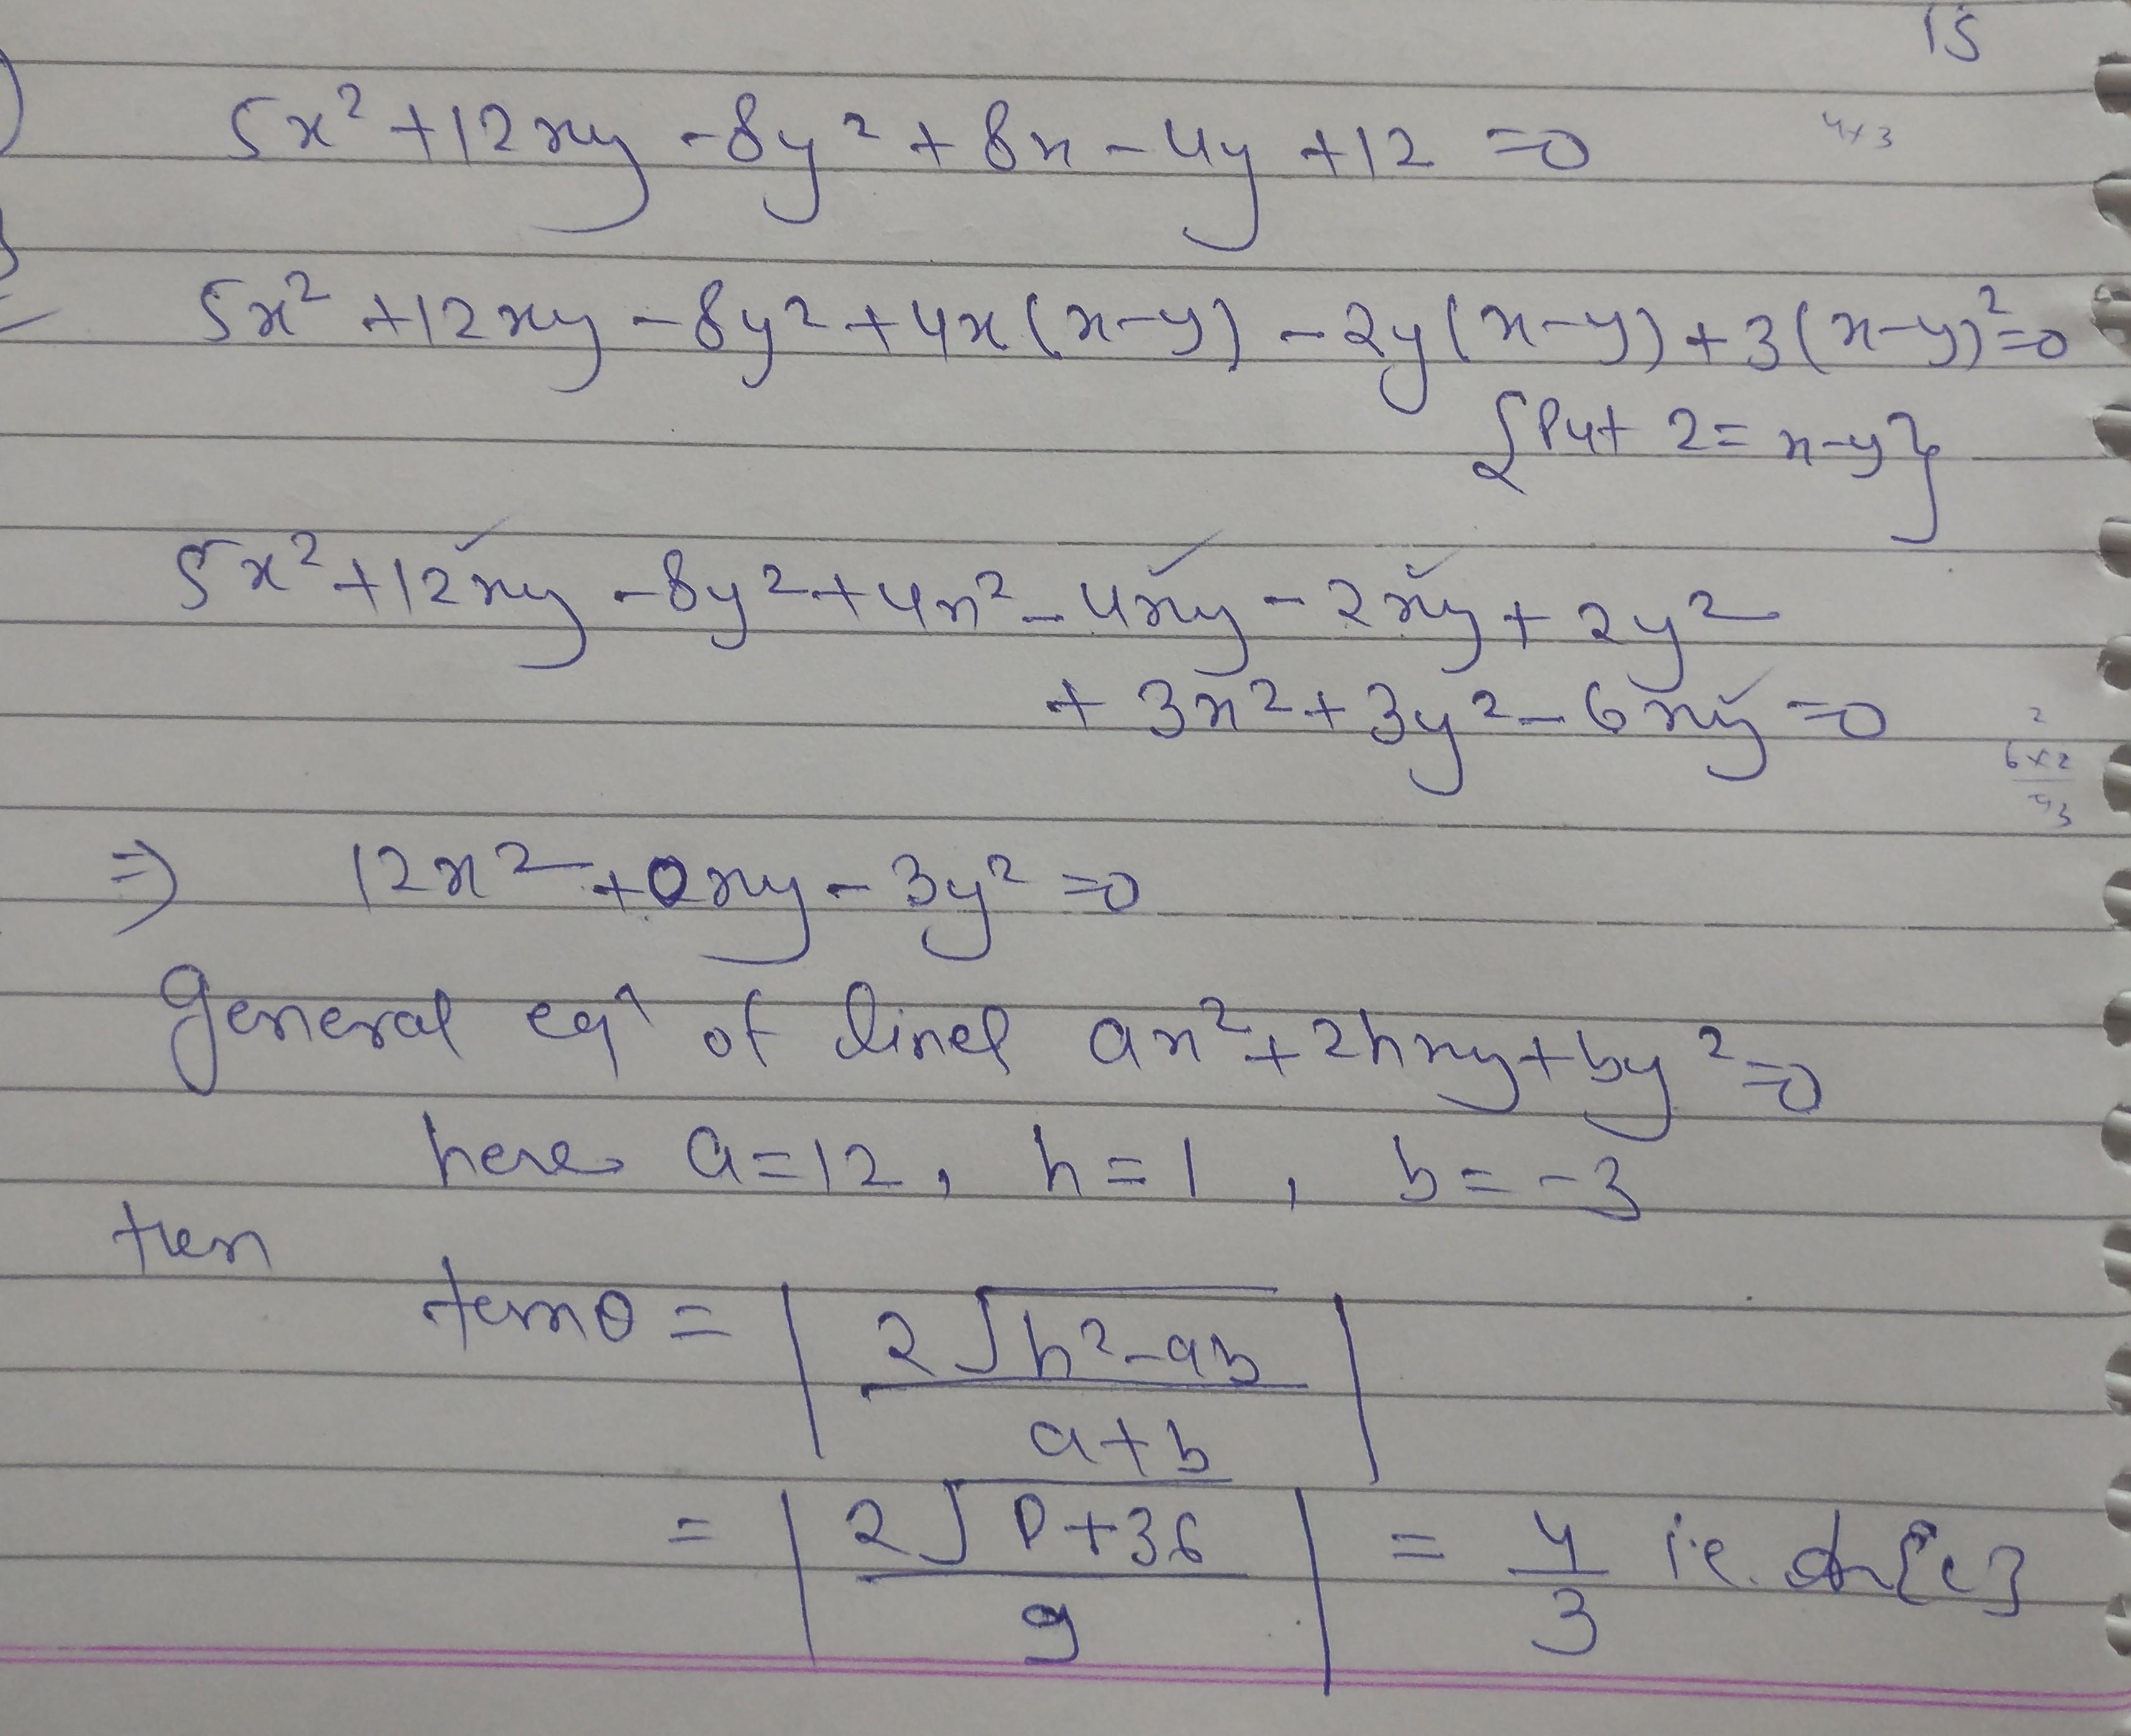 15
5x² + 12xy - 8y² + 8x - 4y + 12 = 0
4×3
5x² + 12xy - 8y² + 4x(x-y) - 2y(x-y) + 3(x-y)² = 0
{Put 2 = x-y}
5x² + 12xy - 8y² + 4x² - 4xy - 2xy + 2y²
+ 3x² + 3y² - 6xy = 0
2
6×2
⇒ 12x² + 0xy - 3y² = 0
General eqⁿ of lines ax² + 2hxy + by² = 0
here a = 12, h = 1, b = -3
then
tanθ = | 2√h²-ab / a+b |
= | 2√0+36 / 9 | = 4/3 i.e. {c}